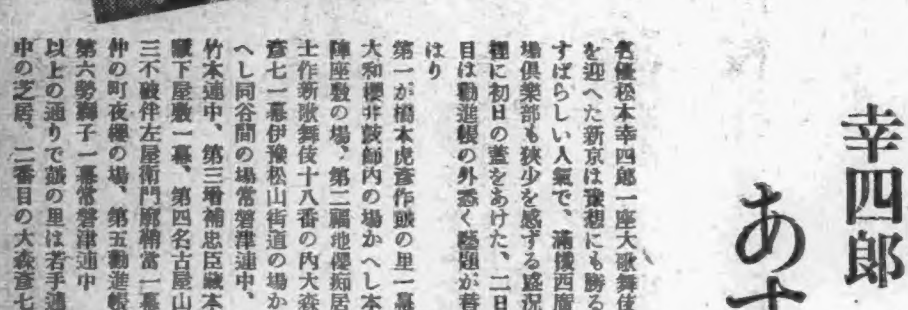 幸四郎
あす
名優松本幸四郎一座大歌舞伎
を迎へた新京は豫想にも勝る
すばらしい人氣で、滿鐵西廣
場倶楽部も狹少を感ずる盛況
裡に初日の蓋をあけた、二日
目は勸進帳の外悉く藝題が替
はり
第一が橋本虎彦作皷の里一幕
大和櫻井皷師内の場かへし本
陣座敷の場、第二福地櫻痴居
士作新歌舞伎十八番の内大森
彦七一幕伊豫松山街道の場か
へし同谷間の場常磐津連中、
竹本連中、第三増補忠臣藏本
藏下屋敷一幕、第四名古屋山
三不破伴左屋衞門廓鞘當一幕
仲の町夜櫻の場、第五勸進帳
第六勢獅子一幕常磐津連中
以上の通りで皷の里は若手連
中の芝居、二番目の大森彦七